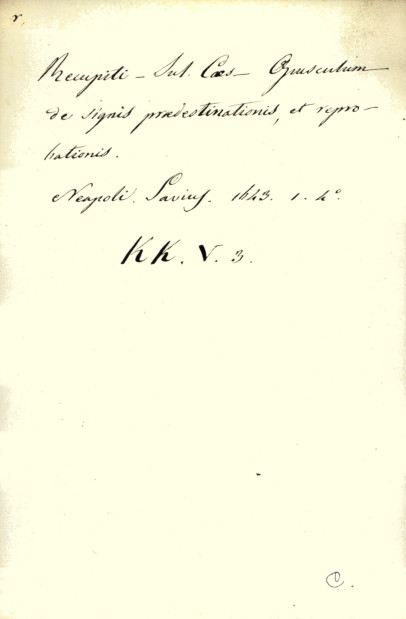 r.
Recupiti - Jul. Cæs - Opusculum
de signis prædestinationis, et repro-
bationis.
Neapoli. Savius. 1643. 1. 4°.
KK. V. 3.
C.